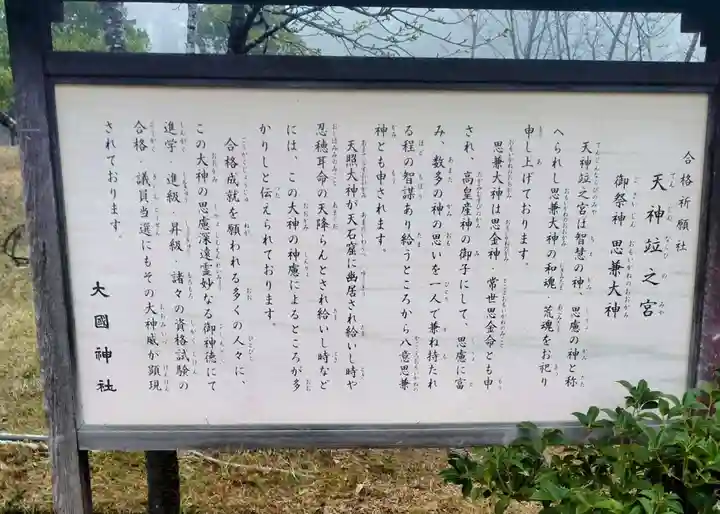 合格祈願社
天神竝之宮
御祭神 思兼大神
天神竝之宮は智慧の神、思慮の神と称
へられし思兼大神の和魂・荒魂をお祀り
申し上げております。
思兼大神は思金神・常世思金命とも申
され、高皇産神の御子にして、思慮に富
み、数多の神の思いを一人で兼ね持たれ
る程の智謀あり給うところから八意思兼
神とも申されます。
天照大神が天石窟に幽居され給いし時や
忍穂耳命の天降らんとされ給いし時など
には、この大神の神慮によるところが多
かりしと伝えられております。
合格成就を願われる多くの人々に、
この大神の思慮深遠霊妙なる御神徳にて
進学・進級・昇級・諸々の資格試験の
合格・議員当選にもその大神威が顕現
されております。
大國神社